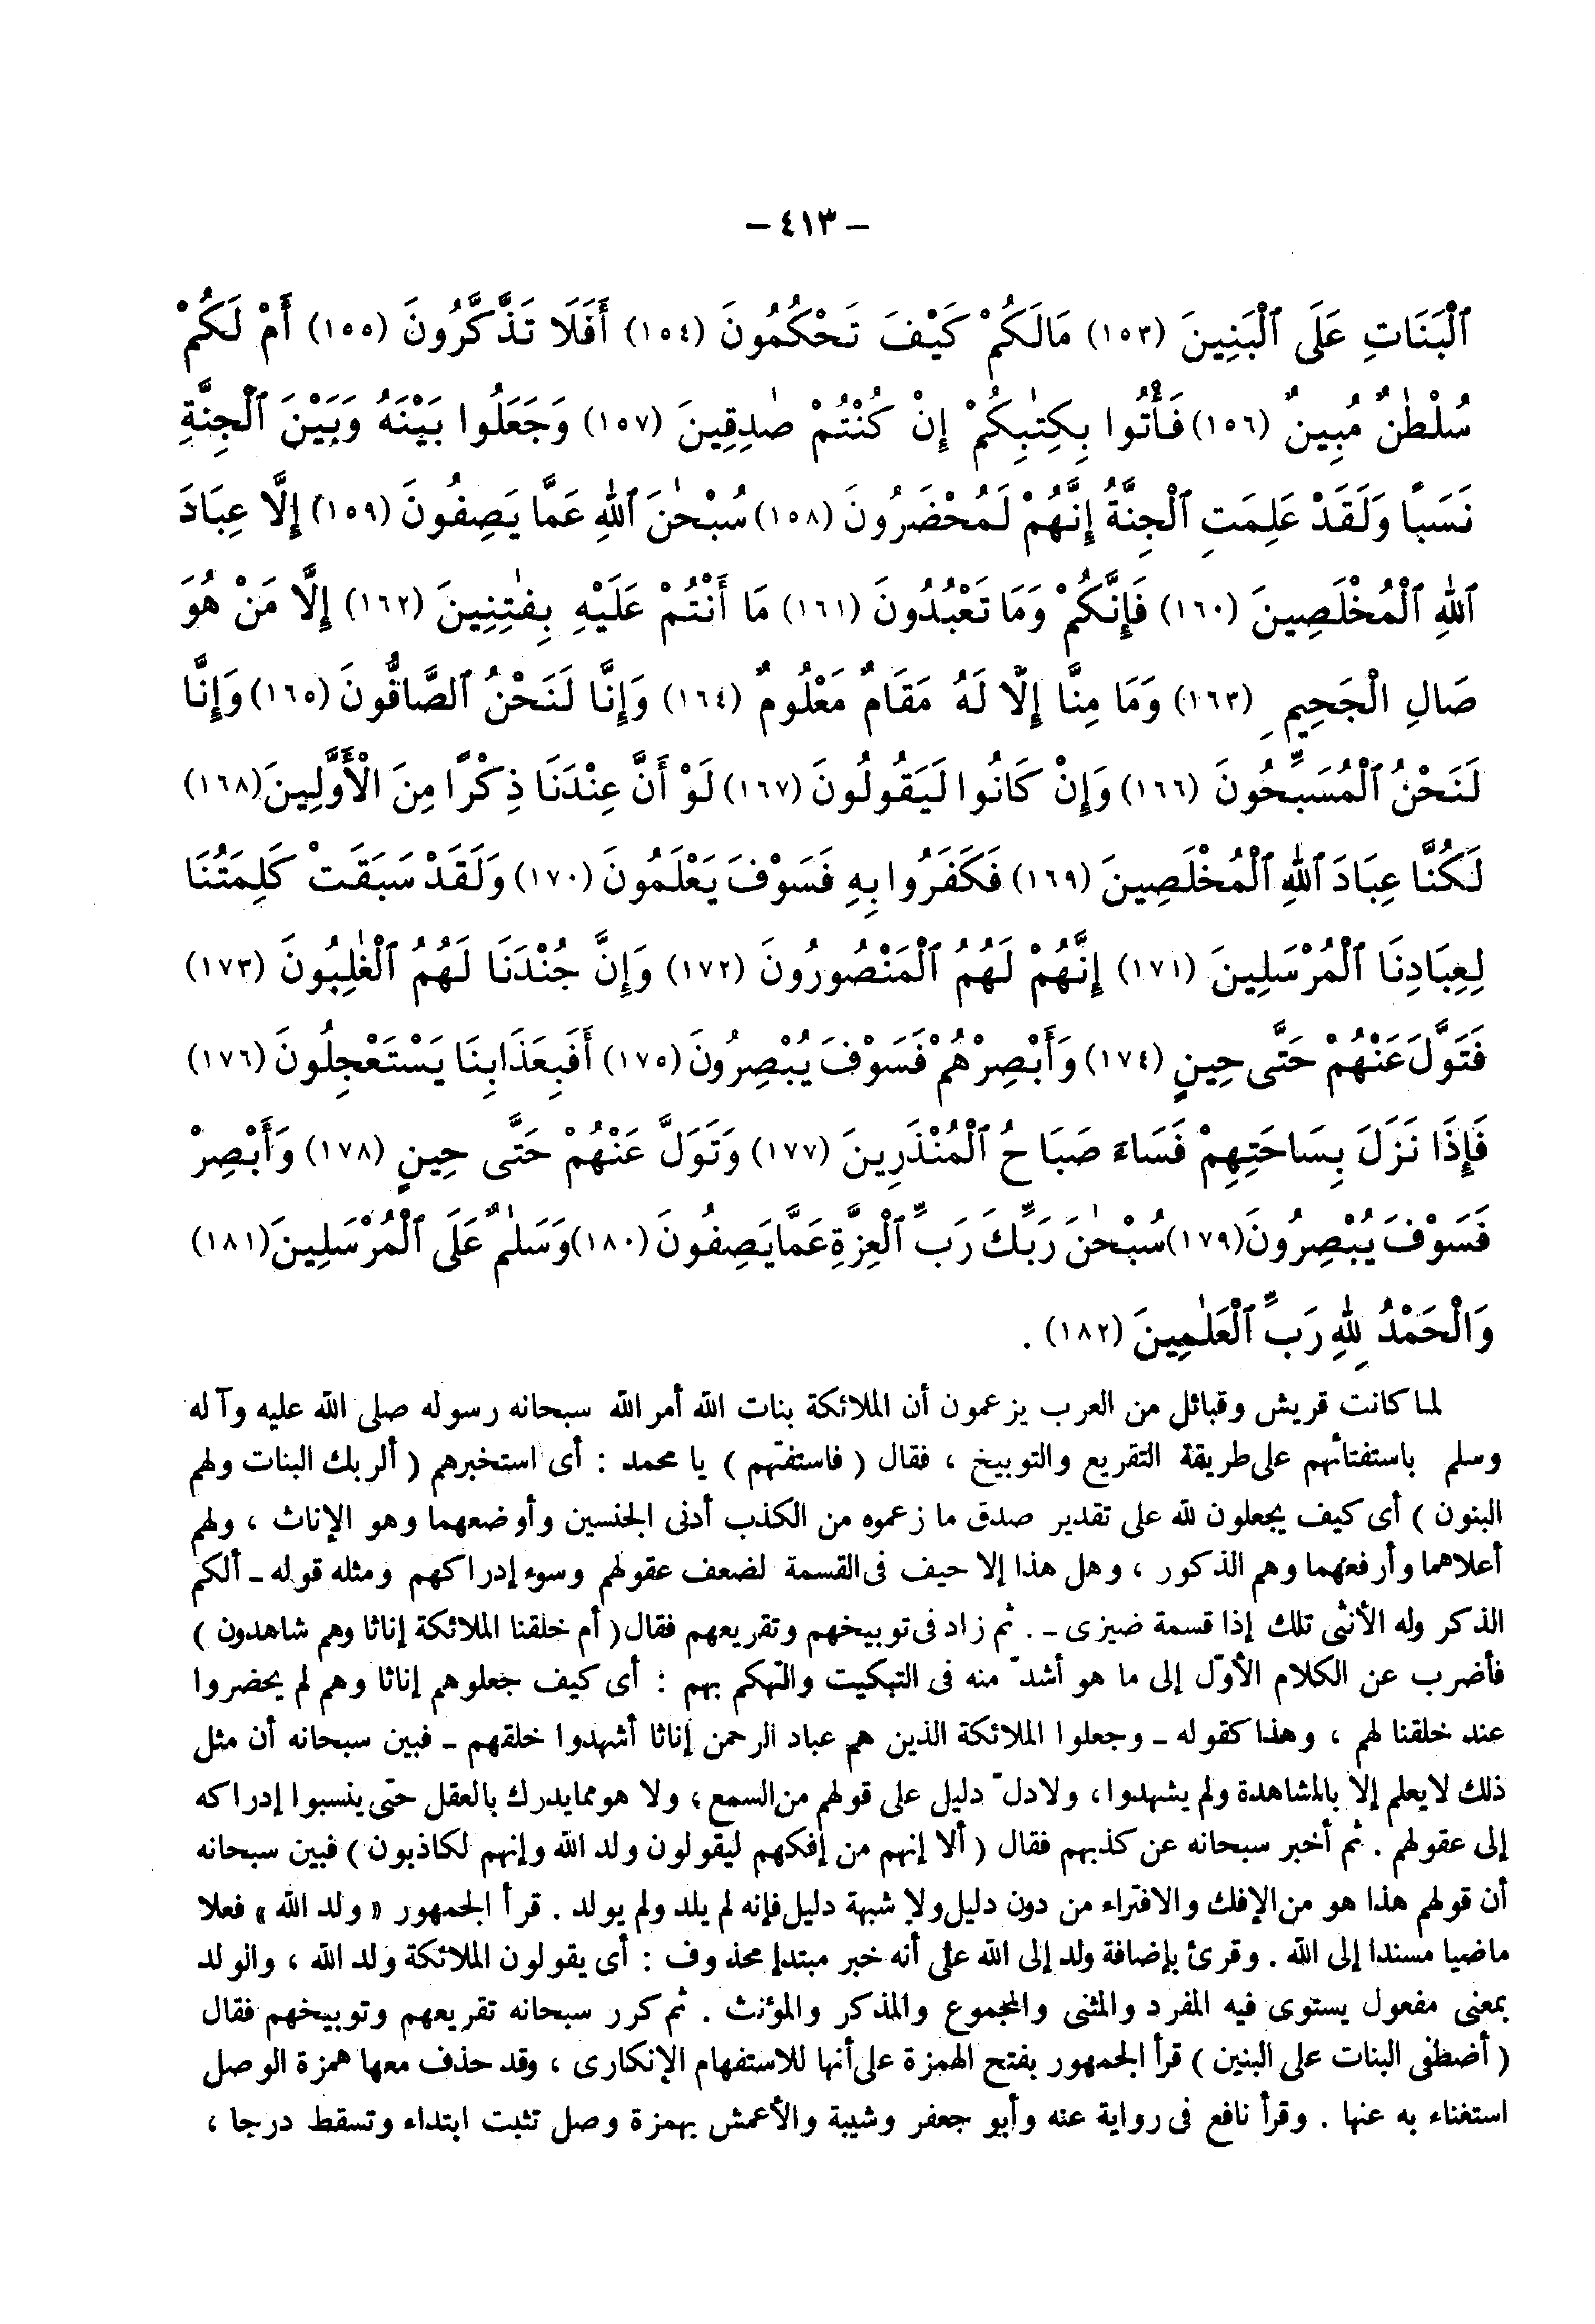 — ٤١٣ —
ٱلْبَنَاتِ عَلَى ٱلْبَنِينَ (١٥٣) مَالَكُمْ كَيْفَ تَحْكُمُونَ (١٥٤) أَفَلَا تَذَّكَّرُونَ (١٥٥) أَمْ لَكُمْ
سُلْطٰنٌ مُبِينٌ (١٥٦) فَأْتُوا بِكِتٰبِكُمْ إِنْ كُنْتُمْ صٰدِقِينَ (١٥٧) وَجَعَلُوا بَيْنَهُ وَبَيْنَ ٱلْجِنَّةِ
نَسَبًا وَلَقَدْ عَلِمَتِ ٱلْجِنَّةُ إِنَّهُمْ لَمُحْضَرُونَ (١٥٨) سُبْحٰنَ ٱللهِ عَمَّا يَصِفُونَ (١٥٩) إِلَّا عِبَادَ
ٱللهِ ٱلْمُخْلَصِينَ (١٦٠) فَإِنَّكُمْ وَمَا تَعْبُدُونَ (١٦١) مَا أَنْتُمْ عَلَيْهِ بِفٰتِنِينَ (١٦٢) إِلَّا مَنْ هُوَ
صَالِ الْجَحِيمِ (١٦٣) وَمَا مِنَّا إِلَّا لَهُ مَقَامٌ مَعْلُومٌ (١٦٤) وَإِنَّا لَنَحْنُ ٱلصَّافُّونَ (١٦٥) وَإِنَّا
لَنَحْنُ ٱلْمُسَبِّحُونَ (١٦٦) وَإِنْ كَانُوا لَيَقُولُونَ (١٦٧) لَوْ أَنَّ عِنْدَنَا ذِكْرًا مِنَ الْأَوَّلِينَ (١٦٨)
لَكُنَّا عِبَادَ ٱللهِ ٱلْمُخْلَصِينَ (١٦٩) فَكَفَرُوا بِهِ فَسَوْفَ يَعْلَمُونَ (١٧٠) وَلَقَدْ سَبَقَتْ كَلِمَتُنَا
لِعِبَادِنَا ٱلْمُرْسَلِينَ (١٧١) إِنَّهُمْ لَهُمُ ٱلْمَنْصُورُونَ (١٧٢) وَإِنَّ جُنْدَنَا لَهُمُ ٱلْغٰلِبُونَ (١٧٣)
فَتَوَلَّ عَنْهُمْ حَتَّى حِينٍ (١٧٤) وَأَبْصِرْهُمْ فَسَوْفَ يُبْصِرُونَ (١٧٥) أَفَبِعَذَابِنَا يَسْتَعْجِلُونَ (١٧٦)
فَإِذَا نَزَلَ بِسَاحَتِهِمْ فَسَاءَ صَبَاحُ ٱلْمُنْذَرِينَ (١٧٧) وَتَوَلَّ عَنْهُمْ حَتَّى حِينٍ (١٧٨) وَأَبْصِرْ
فَسَوْفَ يُبْصِرُونَ (١٧٩) سُبْحٰنَ رَبِّكَ رَبِّ ٱلْعِزَّةِ عَمَّا يَصِفُونَ (١٨٠) وَسَلٰمٌ عَلَى ٱلْمُرْسَلِينَ (١٨١)
وَالْحَمْدُ لِلهِ رَبِّ ٱلْعَلٰمِينَ (١٨٢) .
لما كانت قريش وقبائل من العرب يزعمون أن الملائكة بنات الله أمر الله سبحانه رسوله صلى الله عليه وآله
وسلم باستفتائهم على طريقة التقريع والتوبيخ ، فقال ( فاستفتهم ) يا محمد : أى استخبرهم ( ألربك البنات ولهم
البنون ) أى كيف يجعلون لله على تقدير صدق ما زعموه من الكذب أدنى الجنسين وأوضعهما وهو الإناث ، ولهم
أعلاهما وأرفعهما وهم الذكور ، وهل هذا إلا حيف فى القسمة لضعف عقولهم وسوء إدراكهم ومثله قوله ـ ألكم
الذكر وله الأنثى تلك إذا قسمة ضيزى ـ . ثم زاد فى توبيخهم وتقريعهم فقال ( أم خلقنا الملائكة إناثا وهم شاهدون )
فأضرب عن الكلام الأوّل إلى ما هو أشدّ منه فى التبكيت والتهكم بهم : أى كيف جعلوهم إناثا وهم لم يحضروا
عند خلقنا لهم ، وهذا كقوله ـ وجعلوا الملائكة الذين هم عباد الرحمن إناثا أشهدوا خلقهم ـ فبين سبحانه أن مثل
ذلك لا يعلم إلا بالمشاهدة ولم يشهدوا ، ولا دلّ دليل على قولهم من السمع ، ولا هو مما يدرك بالعقل حتى ينسبوا إدراكه
إلى عقولهم . ثم أخبر سبحانه عن كذبهم فقال ( ألا إنهم من إفكهم ليقولون ولد الله وإنهم لكاذبون ) فبين سبحانه
أن قولهم هذا هو من الإفك والافتراء من دون دليل ولا شبهة دليل فإنه لم يلد ولم يولد . قرأ الجمهور « ولد الله » فعلا
ماضيا مسندا إلى الله . وقرئ بإضافة ولد إلى الله على أنه خبر مبتدإ محذوف : أى يقولون الملائكة ولد الله ، والولد
بمعنى مفعول يستوى فيه المفرد والمثنى والمجموع والمذكر والمؤنث . ثم كرر سبحانه تقريعهم وتوبيخهم فقال
( أصطفى البنات على البنين ) قرأ الجمهور بفتح الهمزة على أنها للاستفهام الإنكارى ، وقد حذف معها همزة الوصل
استغناء به عنها . وقرأ نافع فى رواية عنه وأبو جعفر وشيبة والأعمش بهمزة وصل تثبت ابتداء وتسقط درجا ،